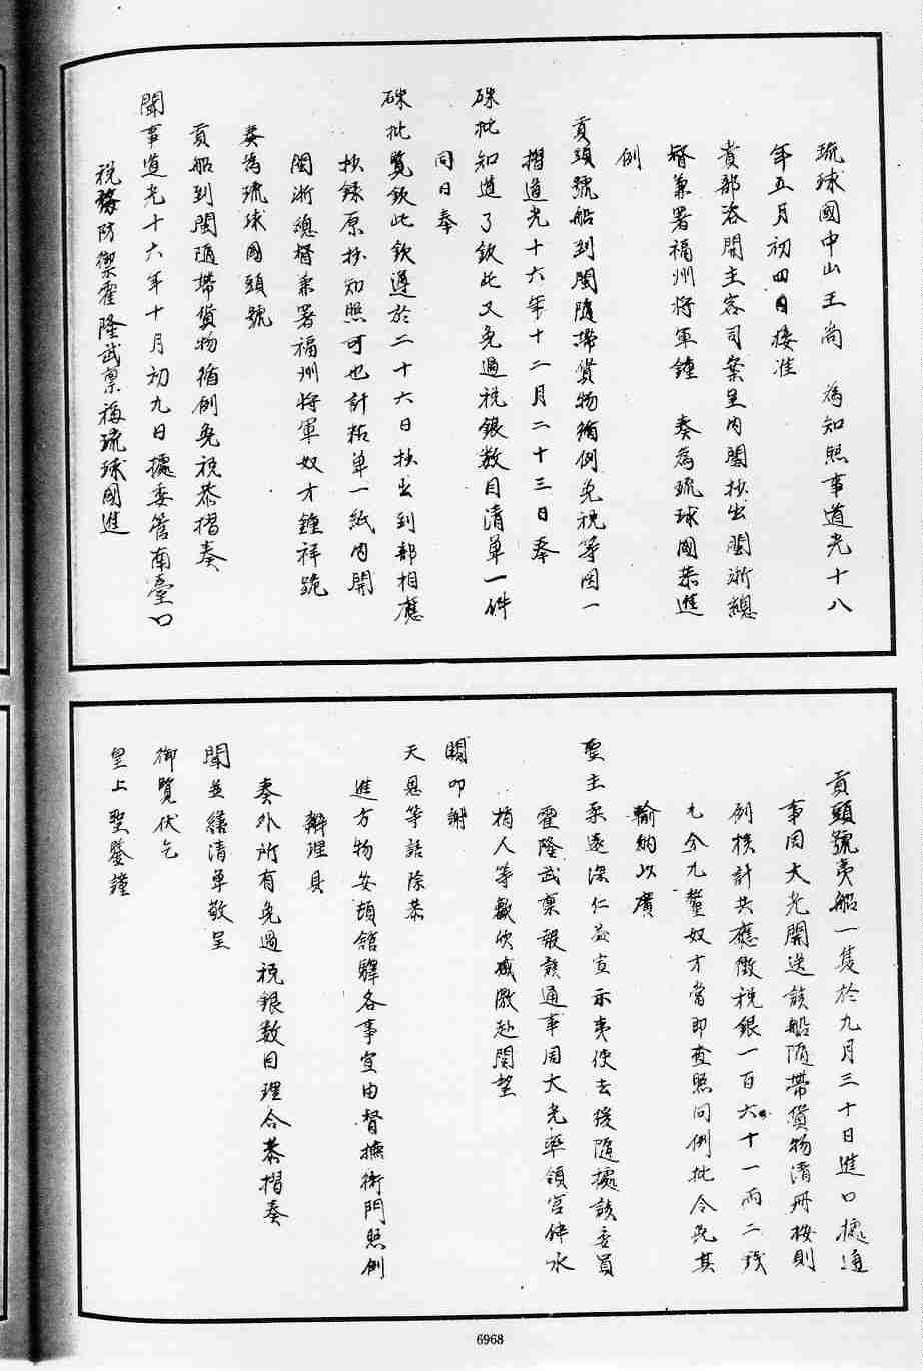 琉球國中山王尚　為知照事道光十八
年五月初四日接准
貴部咨開主客司案呈內閣抄出閩浙總
督兼署福州將軍鍾　奏為琉球國恭進
例
貢頭號船到閩隨帶貨物循例免稅等因一
摺道光十六年十二月二十三日奉
硃批知道了欽此又免過稅銀數目清單一件
同日奉
硃批覽欽此欽遵於二十六日抄出到部相應
抄錄原抄知照可也計粘單一紙內開
閩浙總督兼署福州將軍奴才鍾祥跪
奏為琉球國頭號
貢船到閩隨帶貨物循例免稅恭摺奏
聞事道光十六年十月初九日據委管南臺口
稅務防禦霍隆武稟稱琉球國進
貢頭號夷船一隻於九月三十日進口據通
事周大光開送該船隨帶貨物清冊按則
例核計共應徵稅銀一百六十一兩二錢
七分九釐奴才當即查照向例批令免其
輸納以廣
聖主柔遠深仁並宣示夷使去後隨據該委員
霍隆武稟報該通事周大光率領官伴水
梢人等歡欣感激赴關望
闕叩謝
天恩等語除恭
進方物安頓館驛各事宜由督撫衙門照例
辦理具
奏外所有免過稅銀數目理合恭摺奏
聞並繕清單敬呈
御覽伏乞
皇上聖鑒謹
6968